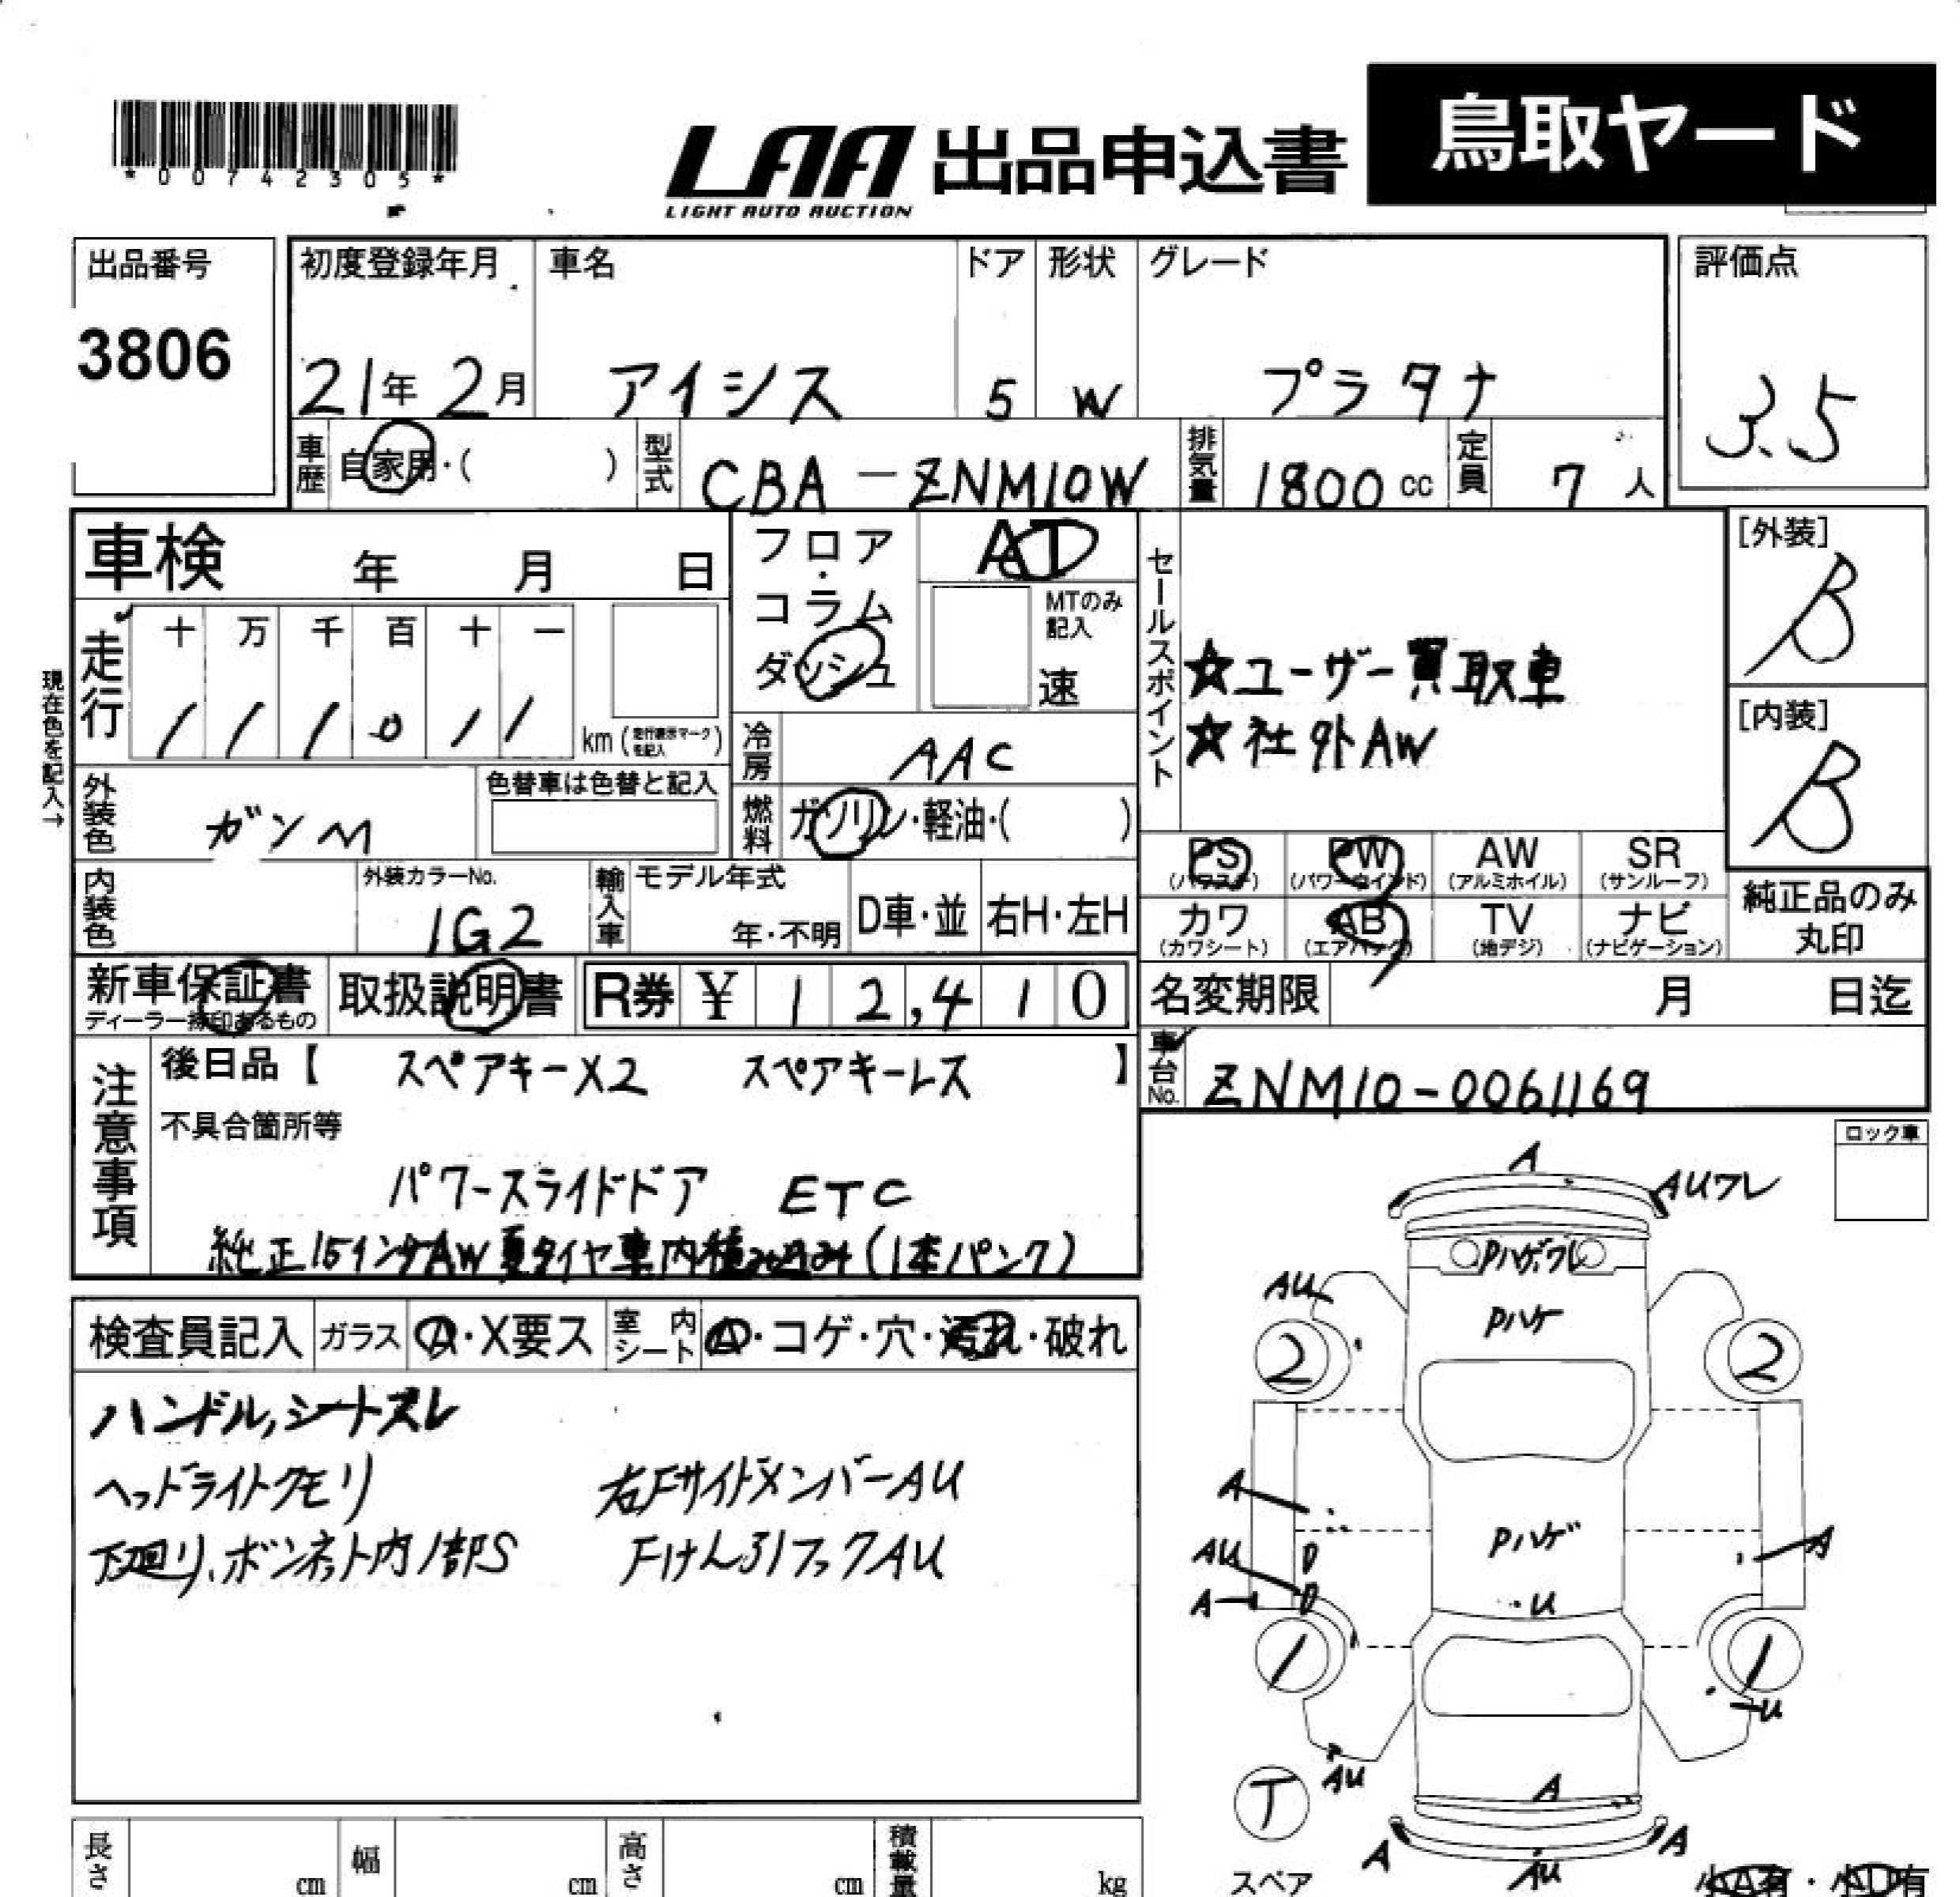 鳥取ヤード
*00742305*
LAA 出品申込書
LIGHT AUTO AUCTION
出品番号
3806
初度登録年月 車名 ドア 形状 グレード
21年 2月 アイシス 5 W プラタナ
評価点
3.5
車歴 自家用・( ) 型式 CBA-ZNM10W 排気量 1800cc 定員 7人
車検 年 月 日
フロア・コラム ダッシュ
AT
MTのみ記入
速
セールスポイント
☆ユーザー買取車
☆社外AW
[外装]
B
[内装]
B
現在色を記入→
走行 十 万 千 百 十 一
1 1 1 0 1 1 km (走行表示マークを記入)
冷房 AAC
外装色 ガンM 色替車は色替と記入
燃料 ガソリン・軽油・( )
PS (パワステ) PW (パワーウインド) AW (アルミホイル) SR (サンルーフ)
カワ (カワシート) AB (エアバック) TV (地デジ) ナビ (ナビゲーション)
純正品のみ丸印
内装色 外装カラーNo. 1G2 輸入車 モデル年式 年・不明 D車・並 右H・左H
新車保証書 ディーラー捺印あるもの 取扱説明書 R券 ¥ 12,410
名変期限 月 日迄
車台No. ZNM10-0061169
注意事項
後日品【 スペアキーX2 スペアキーレス 】
不具合箇所等
パワースライドドア ETC
純正15インチAW夏タイヤ車内積み込み(1本パンク)
ロック車
検査員記入 ガラス A・X要ス 室内シート A・コゲ・穴・汚れ・破れ
ハンドル,シートスレ
ヘッドライトクモリ 右FサイドメンバーAU
下廻り、ボンネット内1部S Fけん引フックAU
A
AUワレ
Pハゲ,ワレ
AU
Pハゲ
2 2
A
Pハゲ
A
AU D
A D
U
1 1
U
AU
T
A
A A
AU
スペア
小A有・小D有
長さ cm 幅 cm 高さ cm 積載量 kg